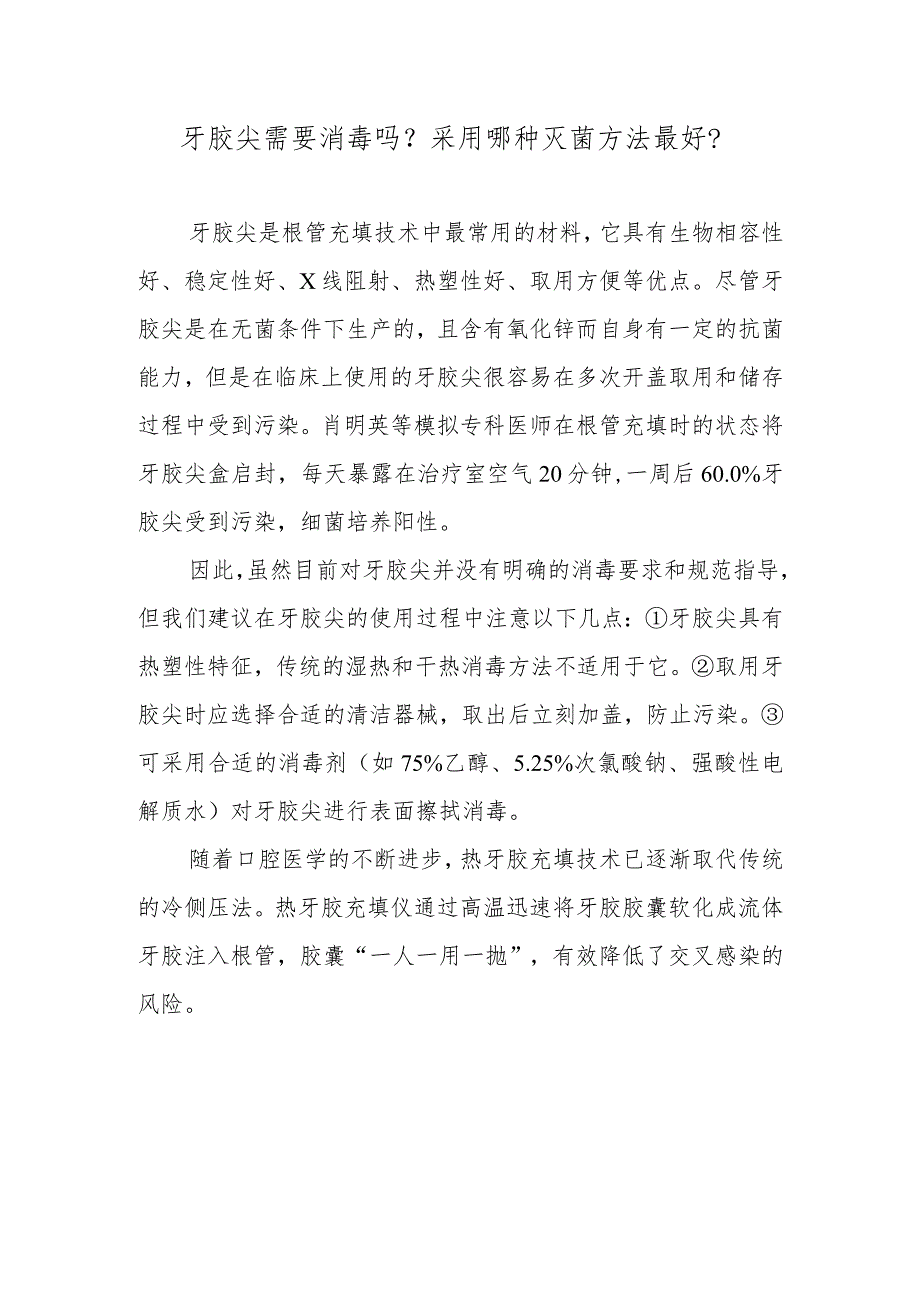 牙胶尖需要消毒吗？采用哪种灭菌方法最好?
牙胶尖是根管充填技术中最常用的材料，它具有生物相容性
好、稳定性好、X线阻射、热塑性好、取用方便等优点。尽管牙
胶尖是在无菌条件下生产的，且含有氧化锌而自身有一定的抗菌
能力，但是在临床上使用的牙胶尖很容易在多次开盖取用和储存
过程中受到污染。肖明英等模拟专科医师在根管充填时的状态将
牙胶尖盒启封，每天暴露在治疗室空气20分钟,一周后60.0%牙
胶尖受到污染，细菌培养阳性。
因此,虽然目前对牙胶尖并没有明确的消毒要求和规范指导，
但我们建议在牙胶尖的使用过程中注意以下几点：①牙胶尖具有
热塑性特征，传统的湿热和干热消毒方法不适用于它。②取用牙
胶尖时应选择合适的清洁器械，取出后立刻加盖，防止污染。③
可采用合适的消毒剂（如75%乙醇、5.25%次氯酸钠、强酸性电
解质水）对牙胶尖进行表面擦拭消毒。
随着口腔医学的不断进步，热牙胶充填技术已逐渐取代传统
的冷侧压法。热牙胶充填仪通过高温迅速将牙胶胶囊软化成流体
牙胶注入根管，胶囊“一人一用一抛”，有效降低了交叉感染的
风险。